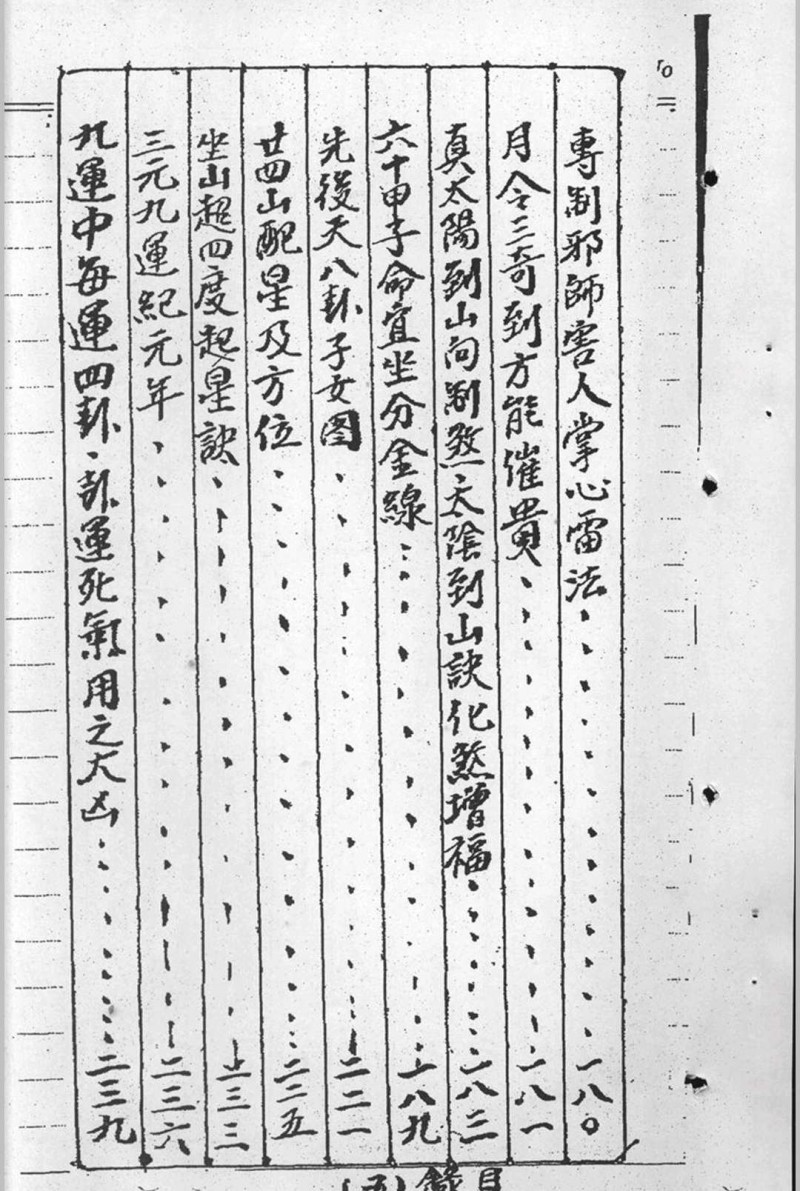 專制邪師害人掌心雷法……一八〇
月令三奇到方能催貴……一八一
真太陽到山向制煞、太陰到山訣化煞增福……一八三
六十甲子命宜坐分金線……一八九
先後天八卦子女图……二二一
廿四山配星及方位……二二五
坐山超四度起星訣……二三三
三元九運紀元年……二三六
九運中每運四卦、卦運死氣用之大凶……二三九
目錄(五)